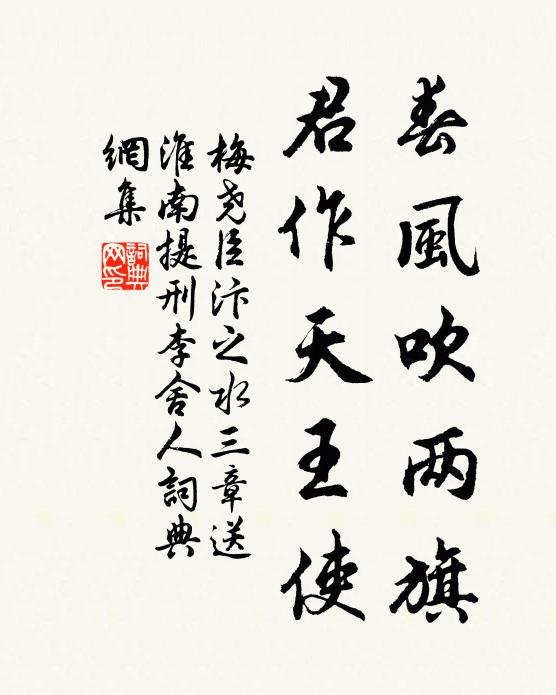 春風吹两旗
君作天王使
梅尧臣汴之水三章送
淮南提刑李舍人詞典
網集
詞典網印